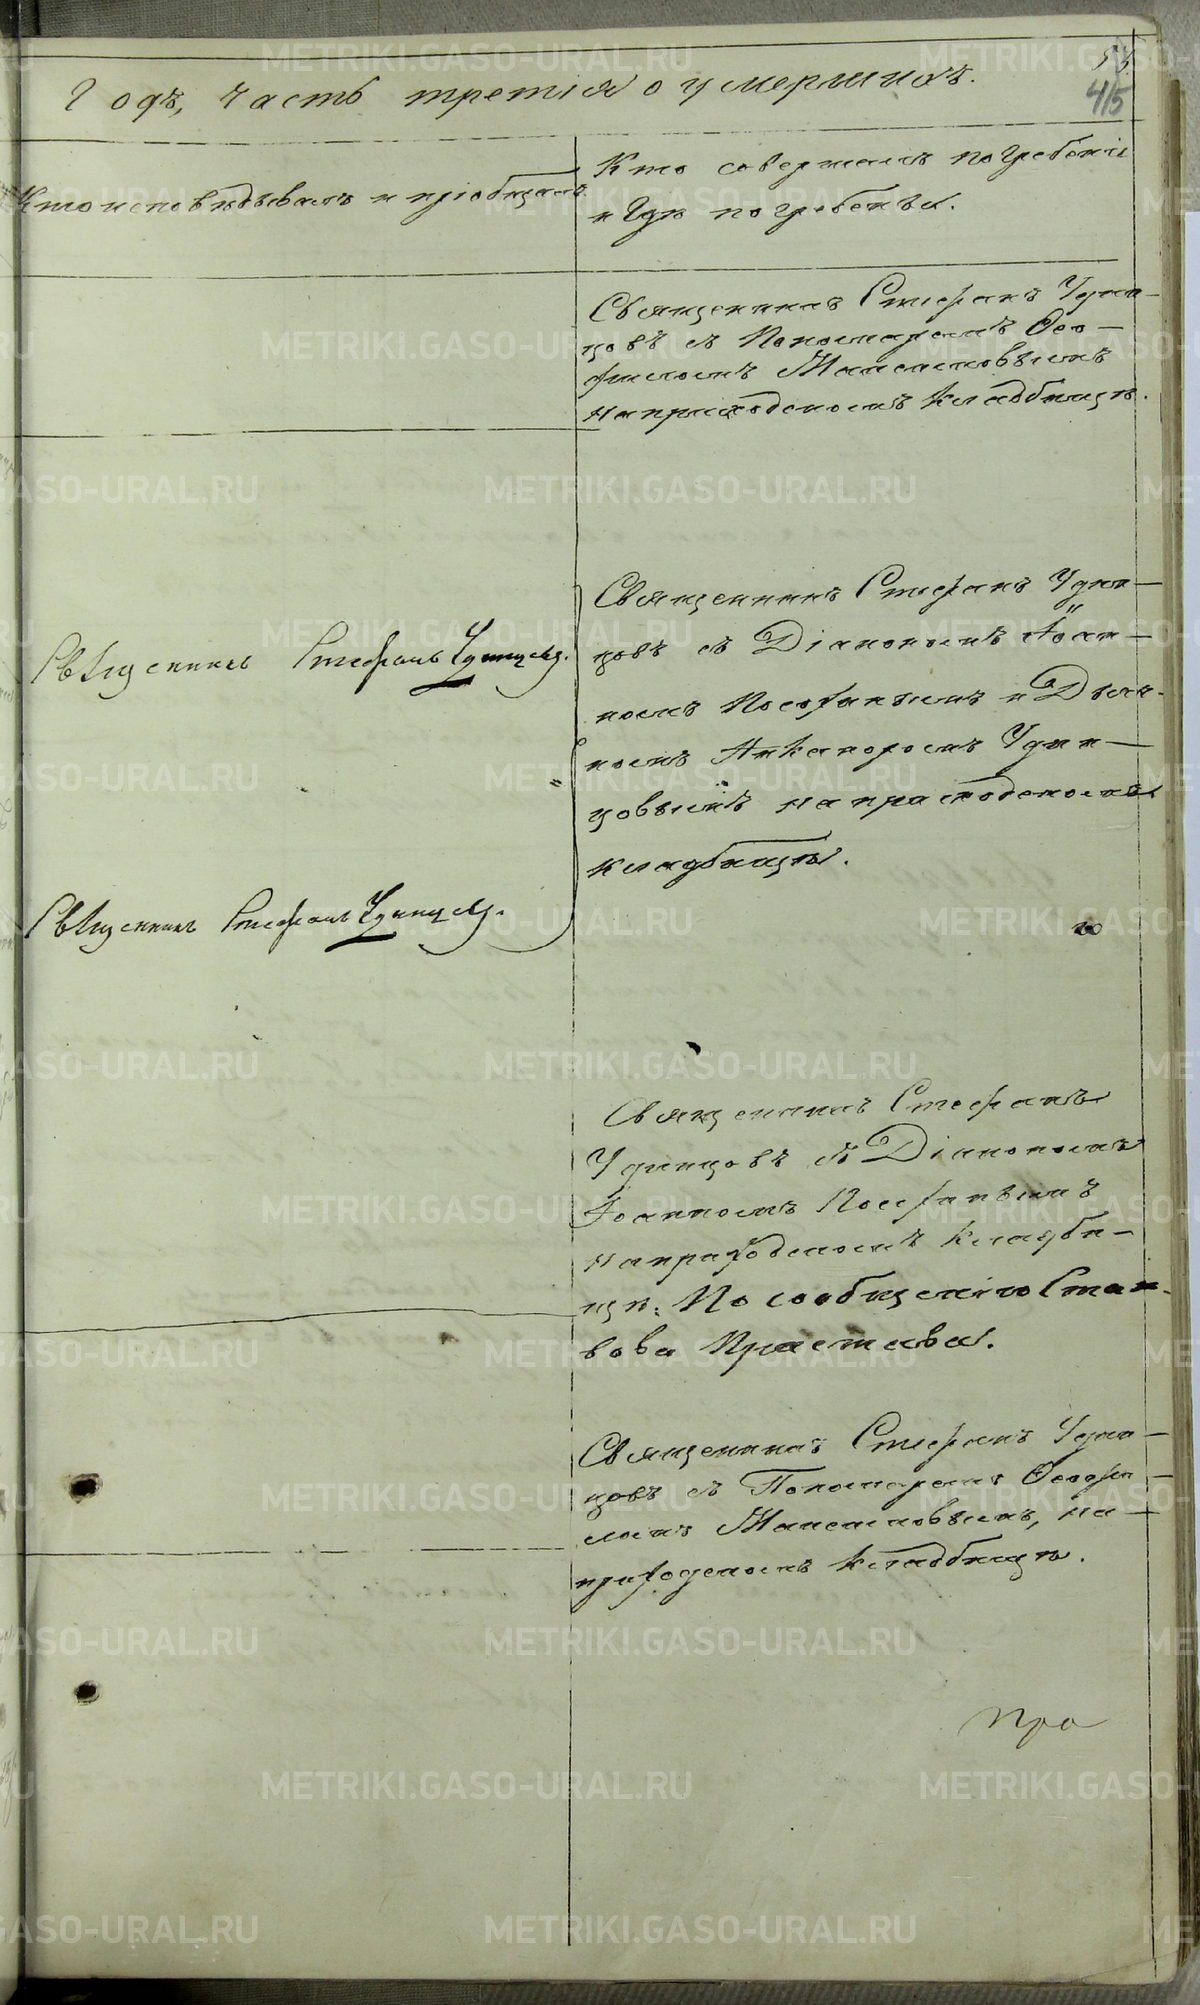 53.
415
Годъ, часть третія о умершихъ.
Кто исповѣдывалъ и пріобщалъ.
Кто совершалъ погребеніе
и гдѣ погребены.
Священникъ Стефанъ Удин-
цовъ съ Пономаремъ Ѳео-
филомъ
на приходскомъ кладбищѣ.
Священникъ Стефанъ Удинцевъ.
Священникъ Стефанъ Удин-
цовъ съ Діакономъ Іоан-
номъ и Дьяч-
комъ Никаноромъ Удин-
цовымъ на приходскомъ
кладбищѣ.
Священникъ Стефанъ Удинцевъ.
Священникъ Стефанъ
Удинцовъ съ Діакономъ
Іоанномъ
на приходскомъ кладби-
щѣ. По сообщенію Стан-
вова Пристава.
Священникъ Стефанъ Удин-
цовъ съ Пономаремъ Ѳеофи-
ломъ на
приходскомъ кладбищѣ.
При
METRIKI.GASO-URAL.RU